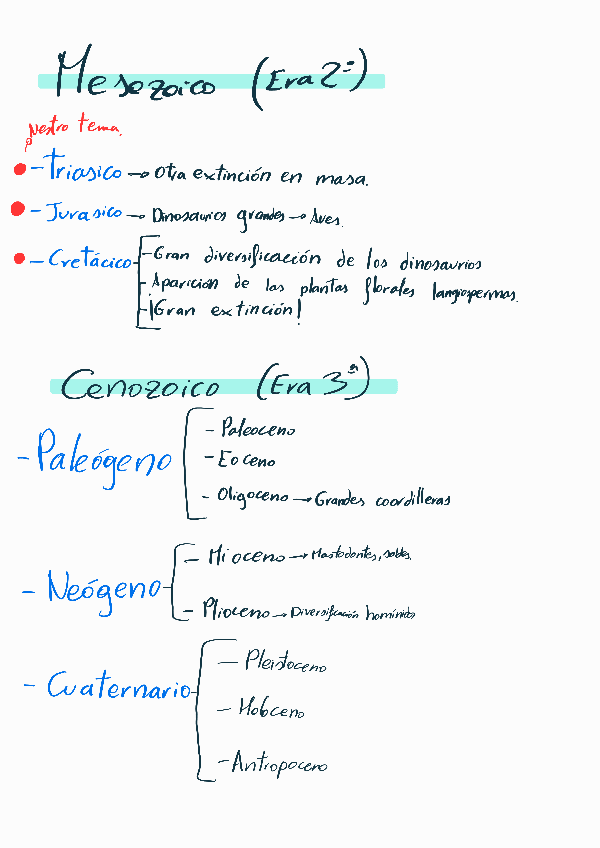 Mesozoico (Era 2ª)
Nestro tema.
- Triasico → Otra extinción en masa.
- Jurasico → Dinosaurios grandes → Aves.
- Cretácico
- Gran diversificación de los dinosaurios
- Aparición de las plantas florales langiospermas.
- ¡Gran extinción!
Cenozoico (Era 3ª)
- Paleógeno
- Paleoceno
- Eoceno
- Oligoceno → Grandes coordilleras
- Neógeno
- Mioceno → Mastodontes, sables.
- Plioceno → Diversificación hominidos
- Cuaternario
- Pleistoceno
- Holoceno
- Antropoceno